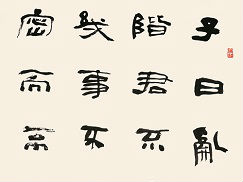 子曰亂
階君不
幾事不
密而